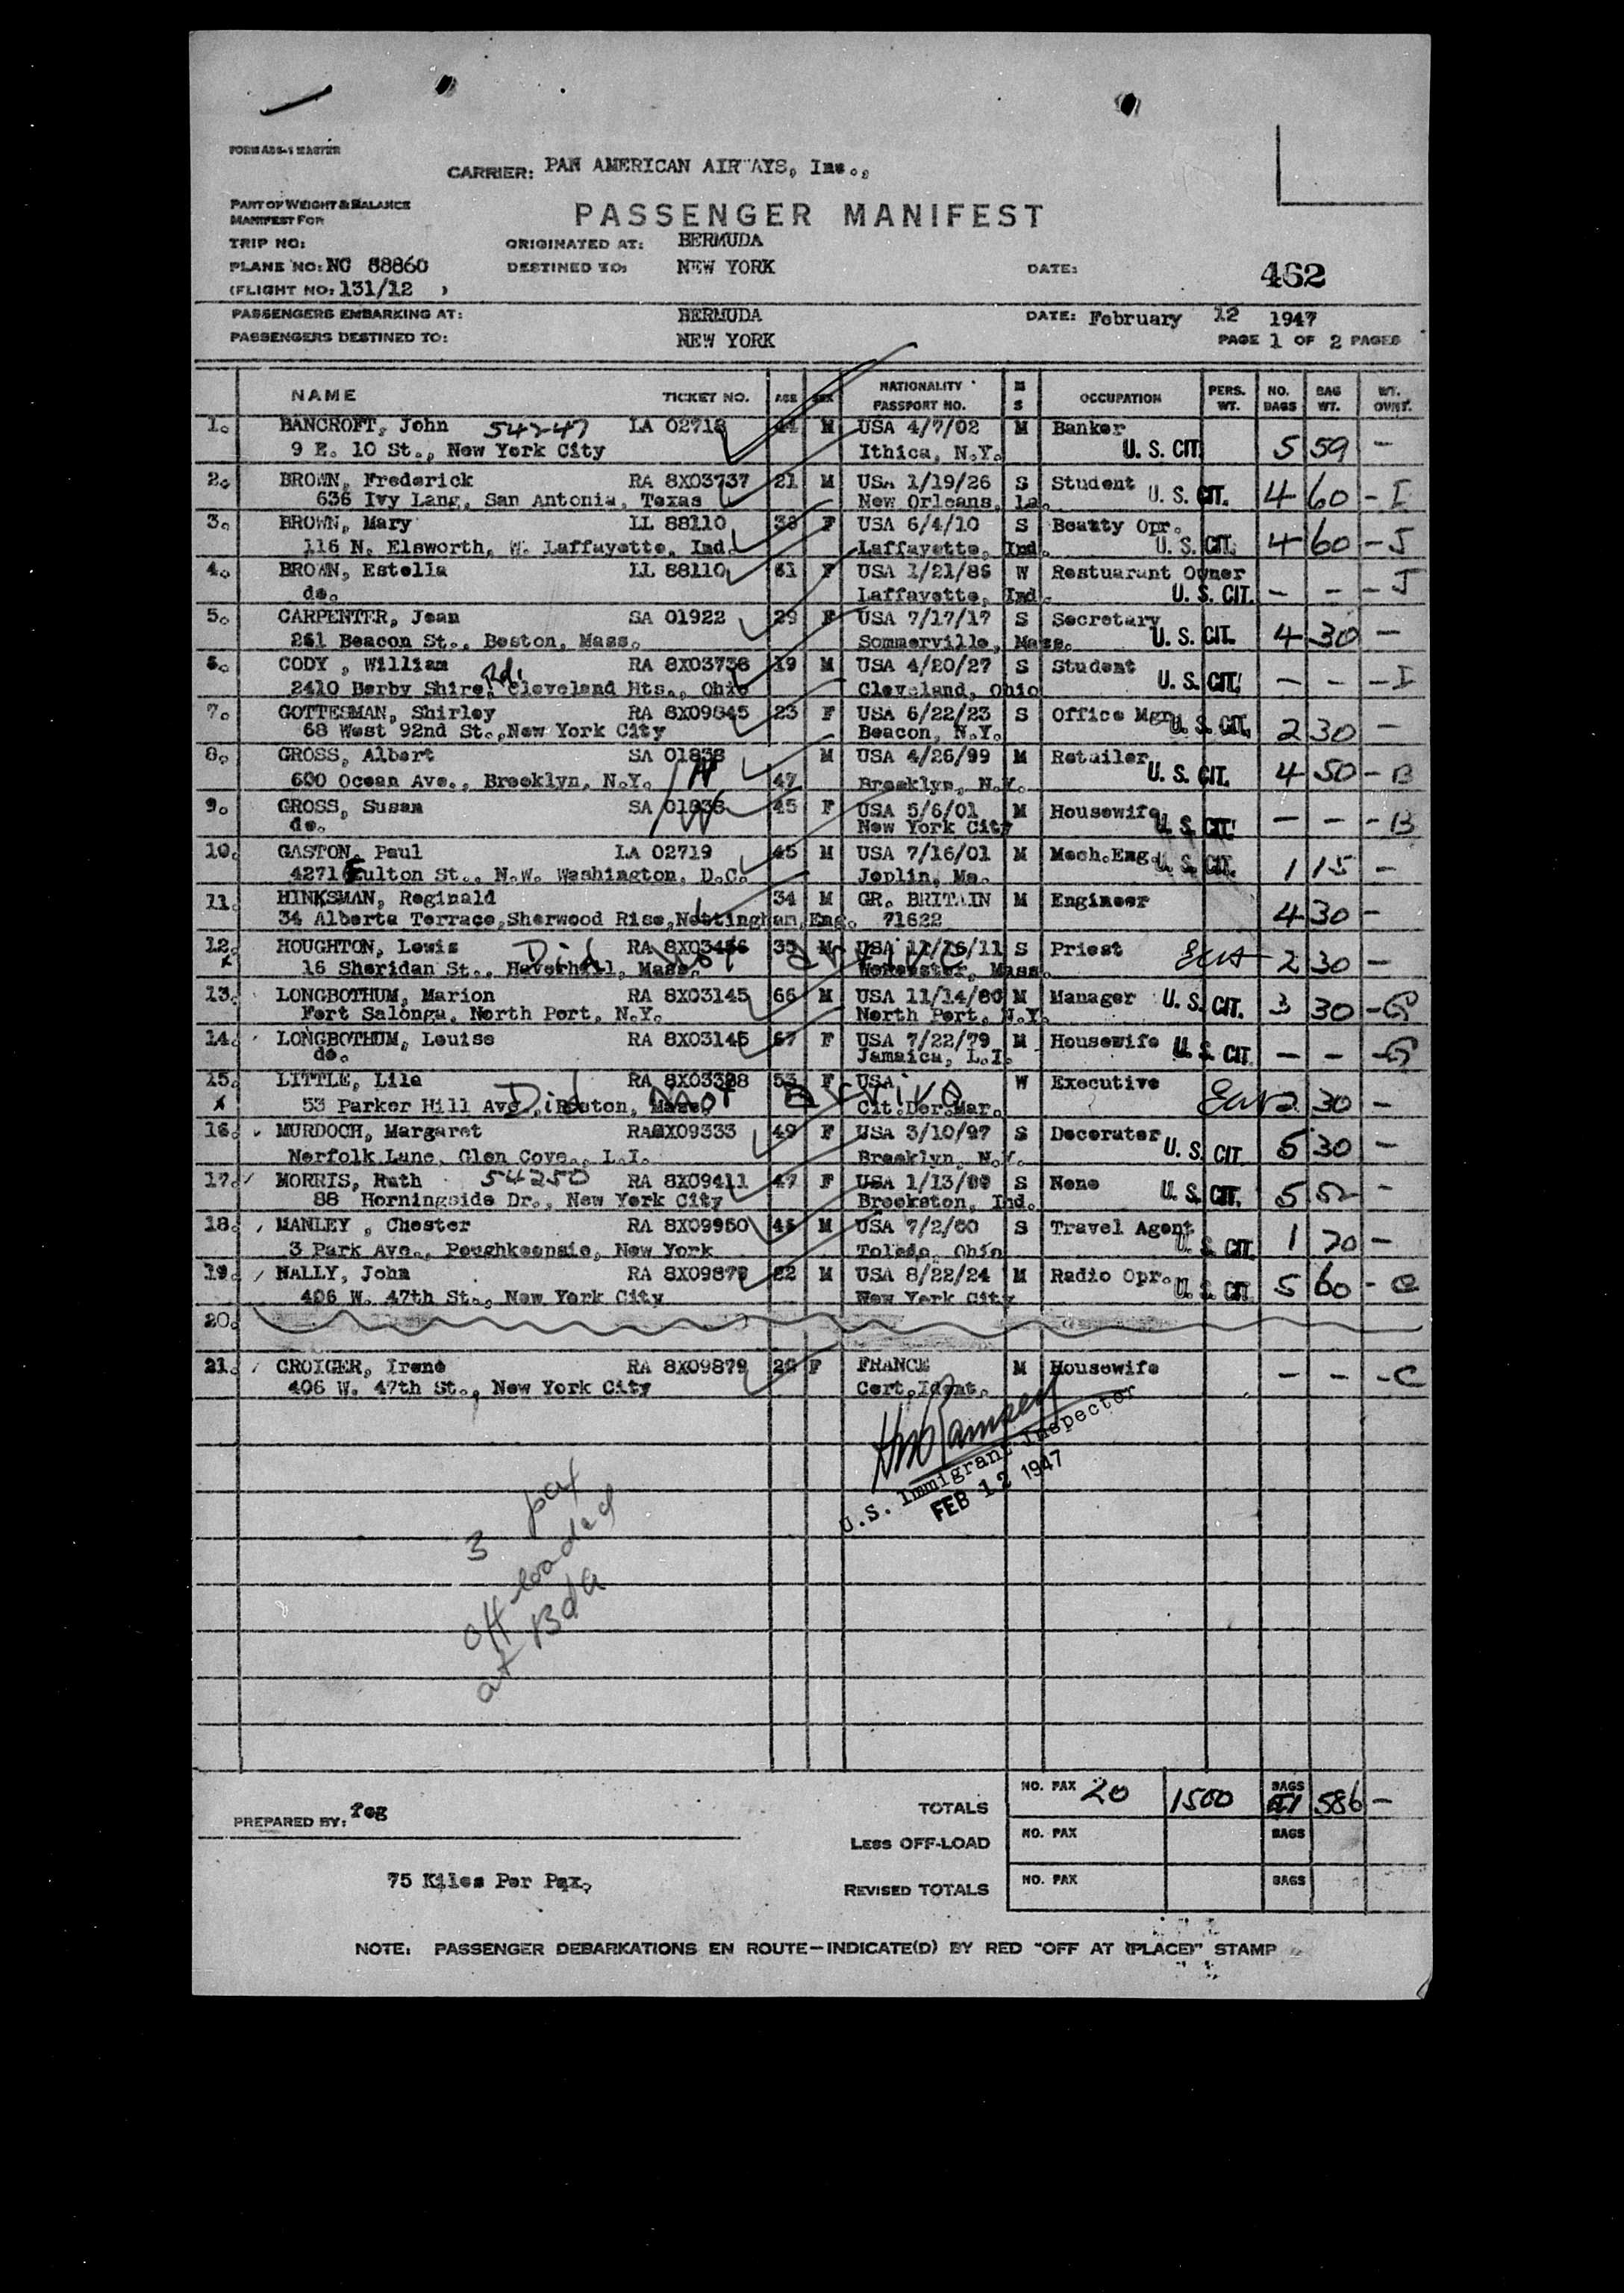 FORM ABS-1 MASTER
CARRIER: PAN AMERICAN AIRWAYS, Inc.,
PART OF WEIGHT & BALANCE
MANIFEST FOR
PASSENGER MANIFEST
TRIP NO: ORIGINATED AT: BERMUDA
PLANE NO: NC 88860 DESTINED TO: NEW YORK DATE: 462
(FLIGHT NO: 131/12 )
PASSENGERS EMBARKING AT: BERMUDA DATE: February 12 1947
PASSENGERS DESTINED TO: NEW YORK PAGE 1 OF 2 PAGES
NAME TICKET NO. AGE SEX NATIONALITY PASSPORT NO. M S OCCUPATION PERS. WT. NO. BAGS BAG WT. WT. OVNT.
1. BANCROFT, John 542-47 LA 02718 44 M USA 4/7/02 M Banker
9 E. 10 St., New York City Ithica, N.Y. U. S. CIT. 5 59 -
2. BROWN, Frederick RA 8X03737 21 M USA 1/19/26 S Student
636 Ivy Lang, San Antonia, Texas New Orleans, La. U. S. CIT. 4 60 - I
3. BROWN, Mary LL 88110 36 F USA 6/4/10 S Beatty Opr.
116 N. Elsworth, W. Laffayette, Ind. Laffayette, Ind. U. S. CIT. 4 60 - J
4. BROWN, Estella LL 88110 61 F USA 1/21/86 W Restuarant Owner
do. Laffayette, Ind. U. S. CIT. - - - J
5. CARPENTER, Jean SA 01922 29 F USA 7/17/17 S Secretary
261 Beacon St., Boston, Mass. Sommerville, Mass. U. S. CIT. 4 30 -
6. CODY , William RA 8X03738 19 M USA 4/20/27 S Student
2410 Berby Shire, Rd. Cleveland Hts., Ohio Cleveland, Ohio U. S. CIT. - - - I
7. GOTTESMAN, Shirley RA 8X09845 23 F USA 6/22/23 S Office Mgr.
68 West 92nd St., New York City Beacon, N.Y. U. S. CIT. 2 30 -
8. GROSS, Albert SA 01838 M USA 4/26/99 M Retailer
600 Ocean Ave., Brooklyn, N.Y. 47 Brooklyn, N.Y. U. S. CIT. 4 50 - B
9. GROSS, Susan SA 01838 45 F USA 5/6/01 M Housewife
do. New York City U. S. CIT. - - - B
10. GASTON, Paul LA 02719 45 M USA 7/16/01 M Mech.Eng.
4271 Fulton St., N.W. Washington, D.C. Joplin, Mo. U. S. CIT. 1 15 -
11. HINKSMAN, Reginald 34 M GR. BRITAIN M Engineer
34 Alberta Terrace, Sherwood Rise, Nottingham, Eng. 71622 4 30 -
12. HOUGHTON, Lewis RA 8X03456 35 M USA 11/16/11 S Priest
x 16 Sheridan St., Haverhill, Mass. Did Not arrive Worcester, Mass. 2 30 -
13. LONGBOTHUM, Marion RA 8X03145 66 M USA 11/14/80 M Manager U. S. CIT. 3 30 - G
Fort Salonga, North Port, N.Y. North Port, N.Y.
14. LONGBOTHUM, Louise RA 8X03146 67 F USA 7/22/79 M Housewife U. S. CIT. - - - G
do. Jamaica, L.I.
15. LITTLE, Lila RA 8X03398 53 F USA W Executive
x 53 Parker Hill Ave., Boston, Mass. Did Not arrive Cit.Der.Mar. 2 30 -
16. MURDOCH, Margaret RA 8X09333 49 F USA 3/10/97 S Decorater
Norfolk Lane, Glen Cove., L.I. Brooklyn, N.Y. U. S. CIT. 5 30 -
17. MORRIS, Ruth 54250 RA 8X09411 47 F USA 1/13/99 S None
88 Horningside Dr., New York City Brookston, Ind. U. S. CIT. 5 52 -
18. MANLEY , Chester RA 8X09950 46 M USA 7/2/00 S Travel Agent
3 Park Ave., Poughkeepsie, New York Toledo, Ohio U. S. CIT. 1 20 -
19. NALLY, John RA 8X09878 22 M USA 8/22/24 M Radio Opr.
406 W. 47th St., New York City New York City U. S. CIT. 5 60 - C
20.
21. CROIGER, Irene RA 8X09879 26 F FRANCE M Housewife
406 W. 47th St., New York City Cert.Ident. - - - C
U.S. Immigrant Inspector
FEB 12 1947
3 pax
off loaded
at Bda
TOTALS NO. PAX 20 1500 BAGS 51 586 -
PREPARED BY: Peg
LESS OFF-LOAD NO. PAX BAGS
75 Kilos Per Pax.
REVISED TOTALS NO. PAX BAGS
NOTE: PASSENGER DEBARKATIONS EN ROUTE-INDICATE(D) BY RED "OFF AT (PLACE)" STAMP